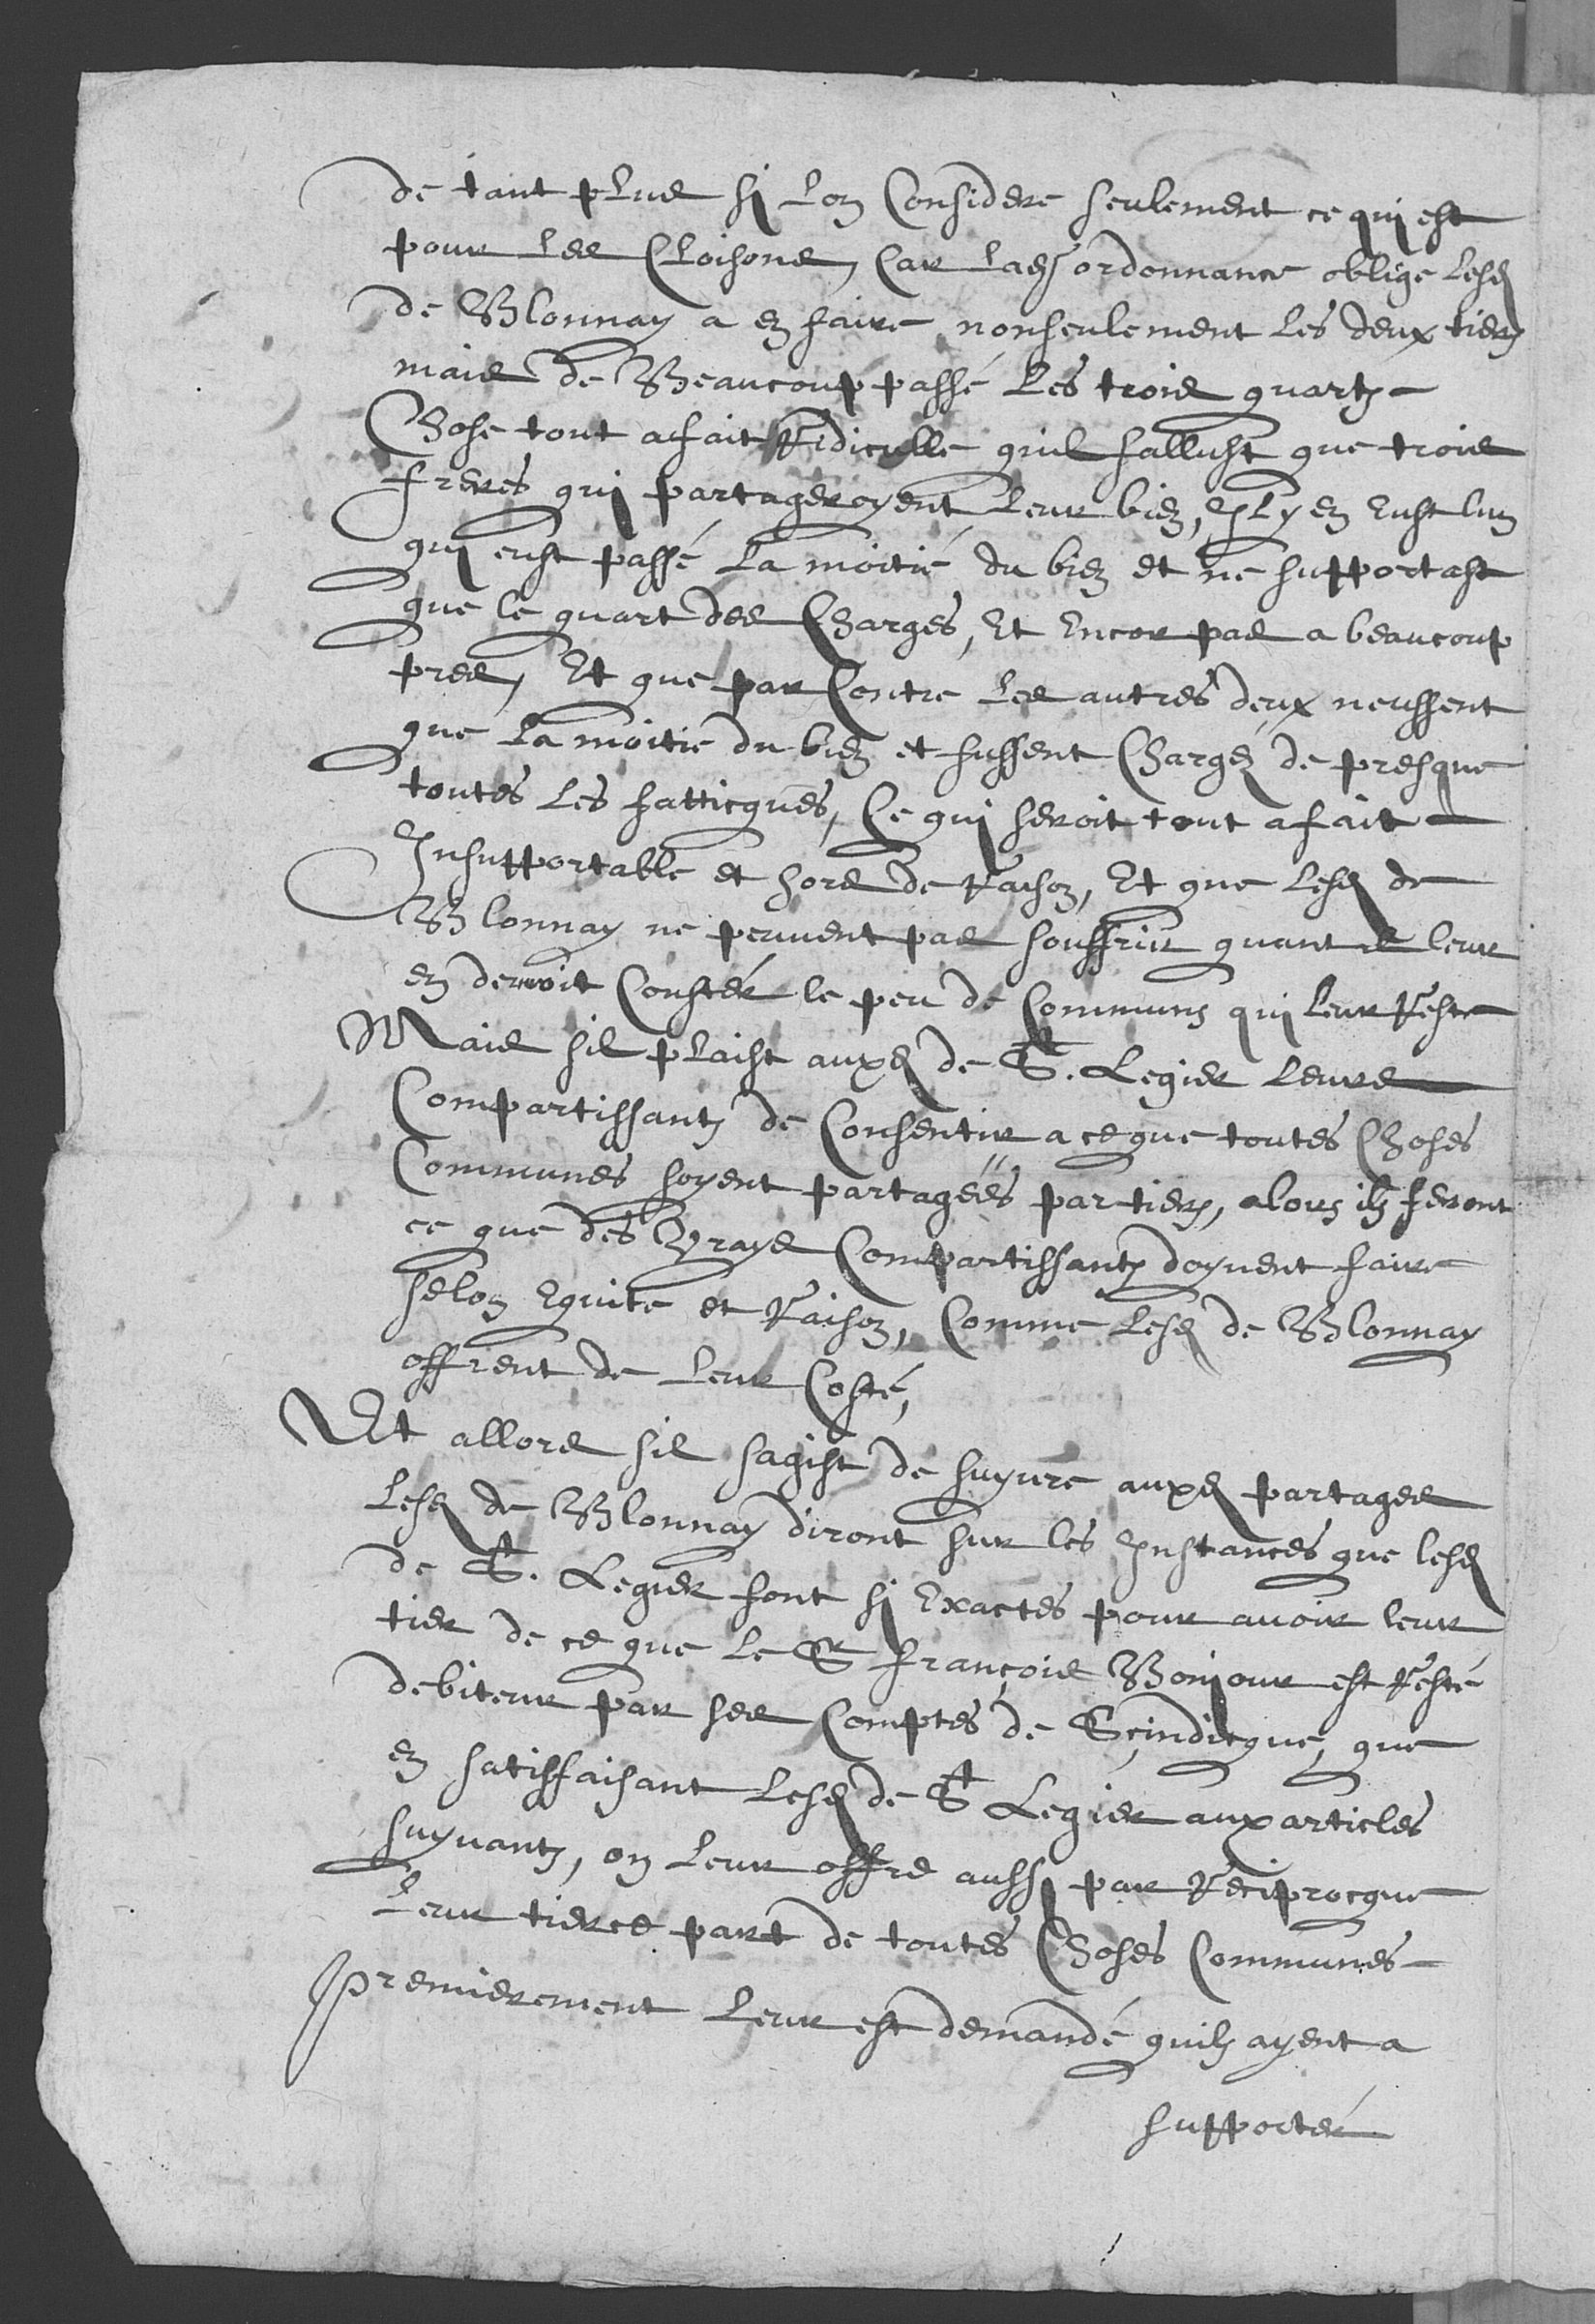 de tant plus si lon Considere seulement ce qui est
pour les Cloisons, Car lad. ordonnance oblige lesd.
de Blonnay a en faire nonseulement les deux tiers
mais de Beaucoup passé les trois quarts
Chose tout afait Ridiculle quil fallust que trois
freres qui partageroyent leur bien, Il y en eust lun
qui eust passé la moitié du bien et ne supportast
que le quart des Charges, Et Encor pas a beaucoup
pres, Et que par Contre les autres deux neussent
que la moitie du bien et fussent Chargés de presque
toutes les fatticques, Ce qui seroit tout afait
Insupportable et hors de Raison, Et que lesd. de
Blonnay ne peuvent pas souffrir quant il leur
en devroit Couster le peu de Communs qui leur Reste
Mais sil plaist auxd. de St. Legier leurs
Compartissants de Consentir a ce que toutes Choses
Communes soyent partagées par tiers, alors ils feront
ce que des Vrays Compartissants doyvent faire
selon Equite et Raison, Comme lesd. de Blonnay
offrent de leur Costé,
Et allors sil sagist de suyure auxd. partages
lesd. de Blonnay diront sur les Instances que lesd.
de St. Legier font si Exactes pour avoir leur
tier de ce que le Sr. françois Bonjour est Resté
debiteur par ses Comptes de Scindicque, que
en satisfaisant lesd. de St Legier aux articles
suyvants, on leur offre aussi par Reciprocque
leur tierce part de toutes Choses Communes
premierement leur est demandé quils ayent a
supporter